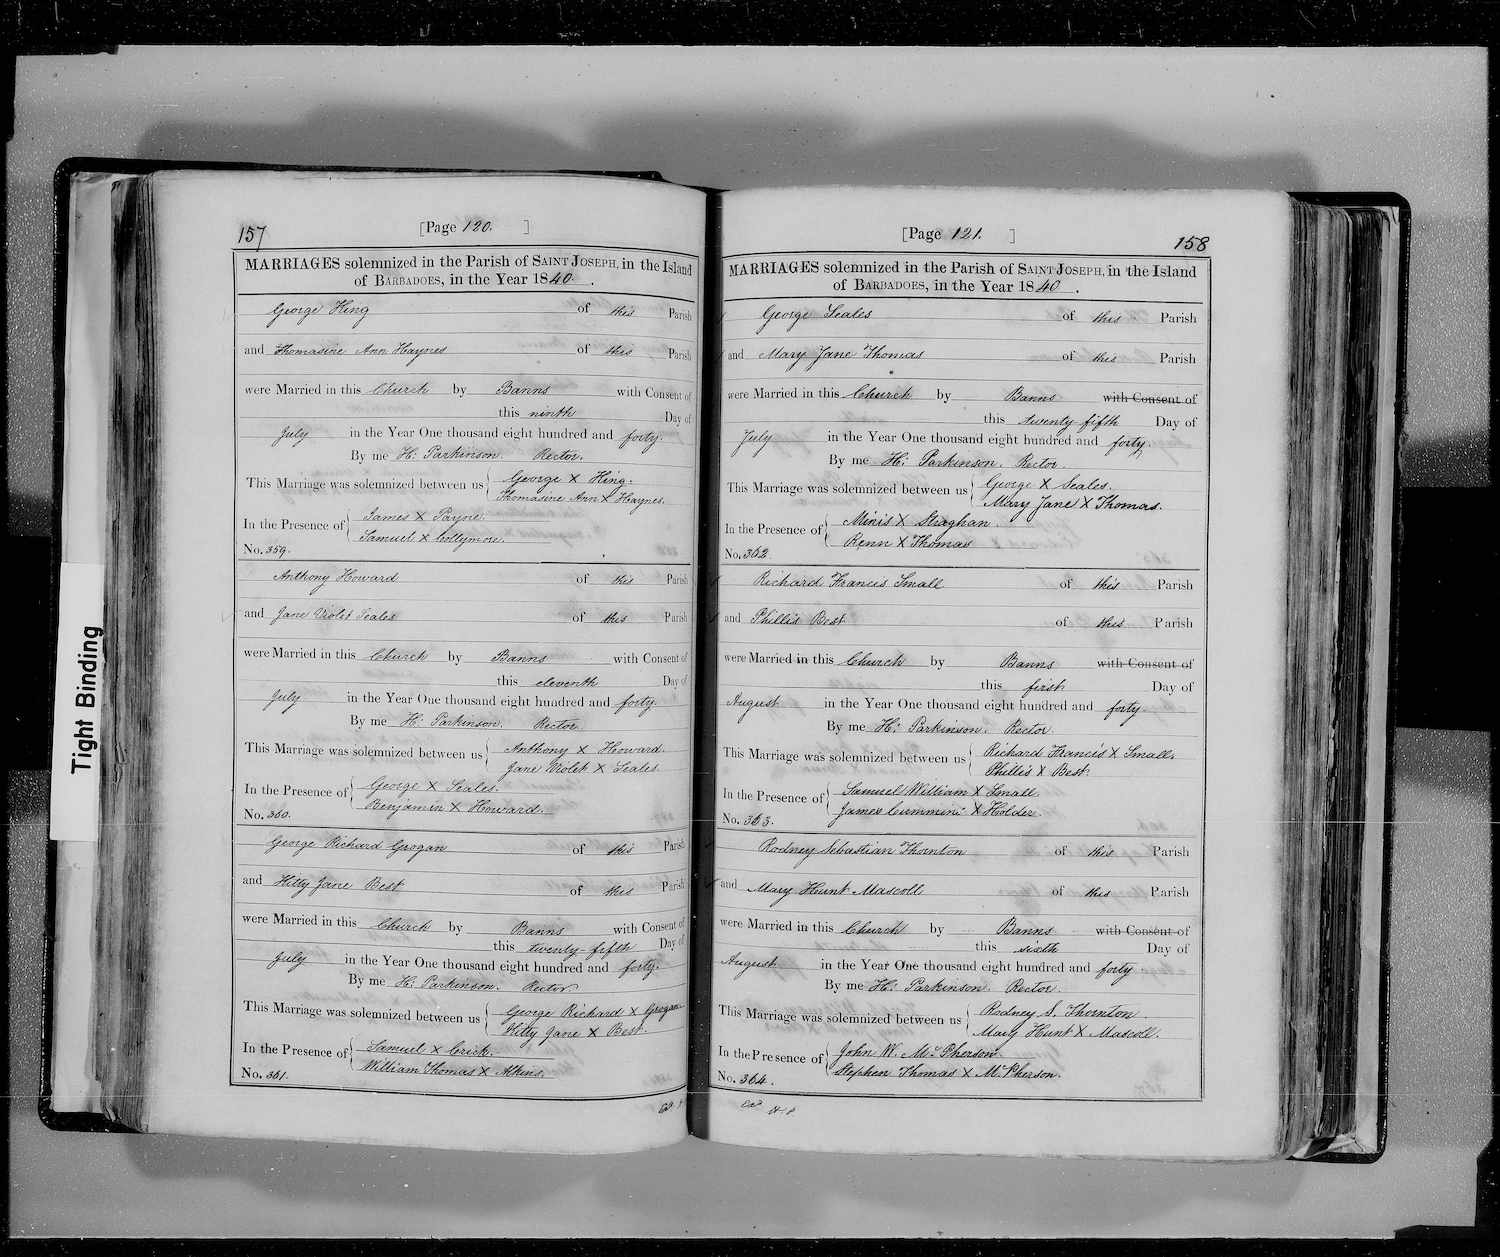 Tight Binding
157
[Page 120. ]
MARRIAGES solemnized in the Parish of SAINT JOSEPH, in the Island
of BARBADOES, in the Year 1840.
George King of this Parish
and Thomasine Ann Haynes of this Parish
were Married in this Church by Banns with Consent of
this ninth Day of
July in the Year One thousand eight hundred and forty.
By me H: Parkinson. Rector.
This Marriage was solemnized between us George X King.
Thomasine Ann X Haynes.
In the Presence of James X Payne.
Samuel X Collymore.
No. 359.
Anthony Howard of this Parish
and Jane Violet Seales of this Parish
were Married in this Church by Banns with Consent of
this eleventh Day of
July in the Year One thousand eight hundred and forty.
By me H: Parkinson. Rector.
This Marriage was solemnized between us Anthony X Howard.
Jane Violet X Seales.
In the Presence of George X Seales.
Benjamin X Howard.
No. 360.
George Richard Grogan of this Parish
and Kitty Jane Best of this Parish
were Married in this Church by Banns with Consent of
this twenty-fifth Day of
July in the Year One thousand eight hundred and forty.
By me H: Parkinson. Rector.
This Marriage was solemnized between us George Richard X Grogan
Kitty Jane X Best.
In the Presence of Samuel X Crick.
William Thomas X Atkins.
No. 361.
158
[Page 121. ]
MARRIAGES solemnized in the Parish of SAINT JOSEPH, in the Island
of BARBADOES, in the Year 1840.
George Seales of this Parish
and Mary Jane Thomas of this Parish
were Married in this Church by Banns with Consent of
this twenty fifth Day of
July in the Year One thousand eight hundred and forty.
By me H: Parkinson. Rector.
This Marriage was solemnized between us George X Seales.
Mary Jane X Thomas.
In the Presence of X Straghan.
Renn X Thomas
No. 362
Richard Francis Small of this Parish
and Phillis Best of this Parish
were Married in this Church by Banns with Consent of
this first Day of
August in the Year One thousand eight hundred and forty
By me H: Parkinson. Rector.
This Marriage was solemnized between us Richard Francis X Small.
Phillis X Best.
In the Presence of Samuel William X Small.
James Cummins X Holder.
No. 363.
Rodney Sebastian Thornton of this Parish
and Mary Hunt Mascoll of this Parish
were Married in this Church by Banns with Consent of
this sixth Day of
August in the Year One thousand eight hundred and forty
By me H: Parkinson. Rector.
This Marriage was solemnized between us Rodney S. Thornton.
Mary Hunt X Mascoll.
In the Presence of John W. McPherson.
Stephen Thomas X McPherson.
No. 364.